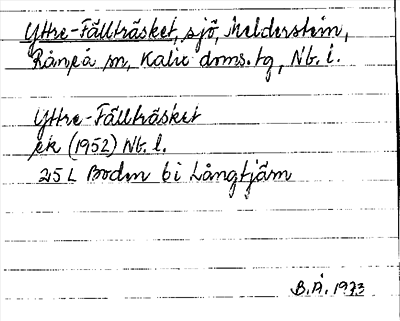 Yttre-Fällträsket, sjö, Melderstein,
Råneå sn, Kalix doms.tg, Nb. l.
Yttre-Fällträsket
ek (1952) Nb. l.
25 L Boden 6i Långtjärn
B.Å. 1973